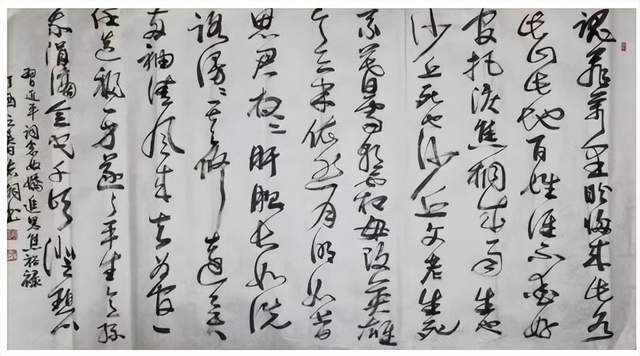 魂飞万里盼归来此水
此山此地百姓谁不爱好
官把泪焦桐成雨生也
沙丘死也沙丘父老生死
系暮雪朝霜毋改英雄
意气依然月明如昔
思君夜夜肝胆长如洗
路漫漫其修远矣
两袖清风来去为官一
任造福一方遂了平生意绿
我涓滴会它千顷澄碧
习近平词念奴娇追思焦裕禄
丁酉立春